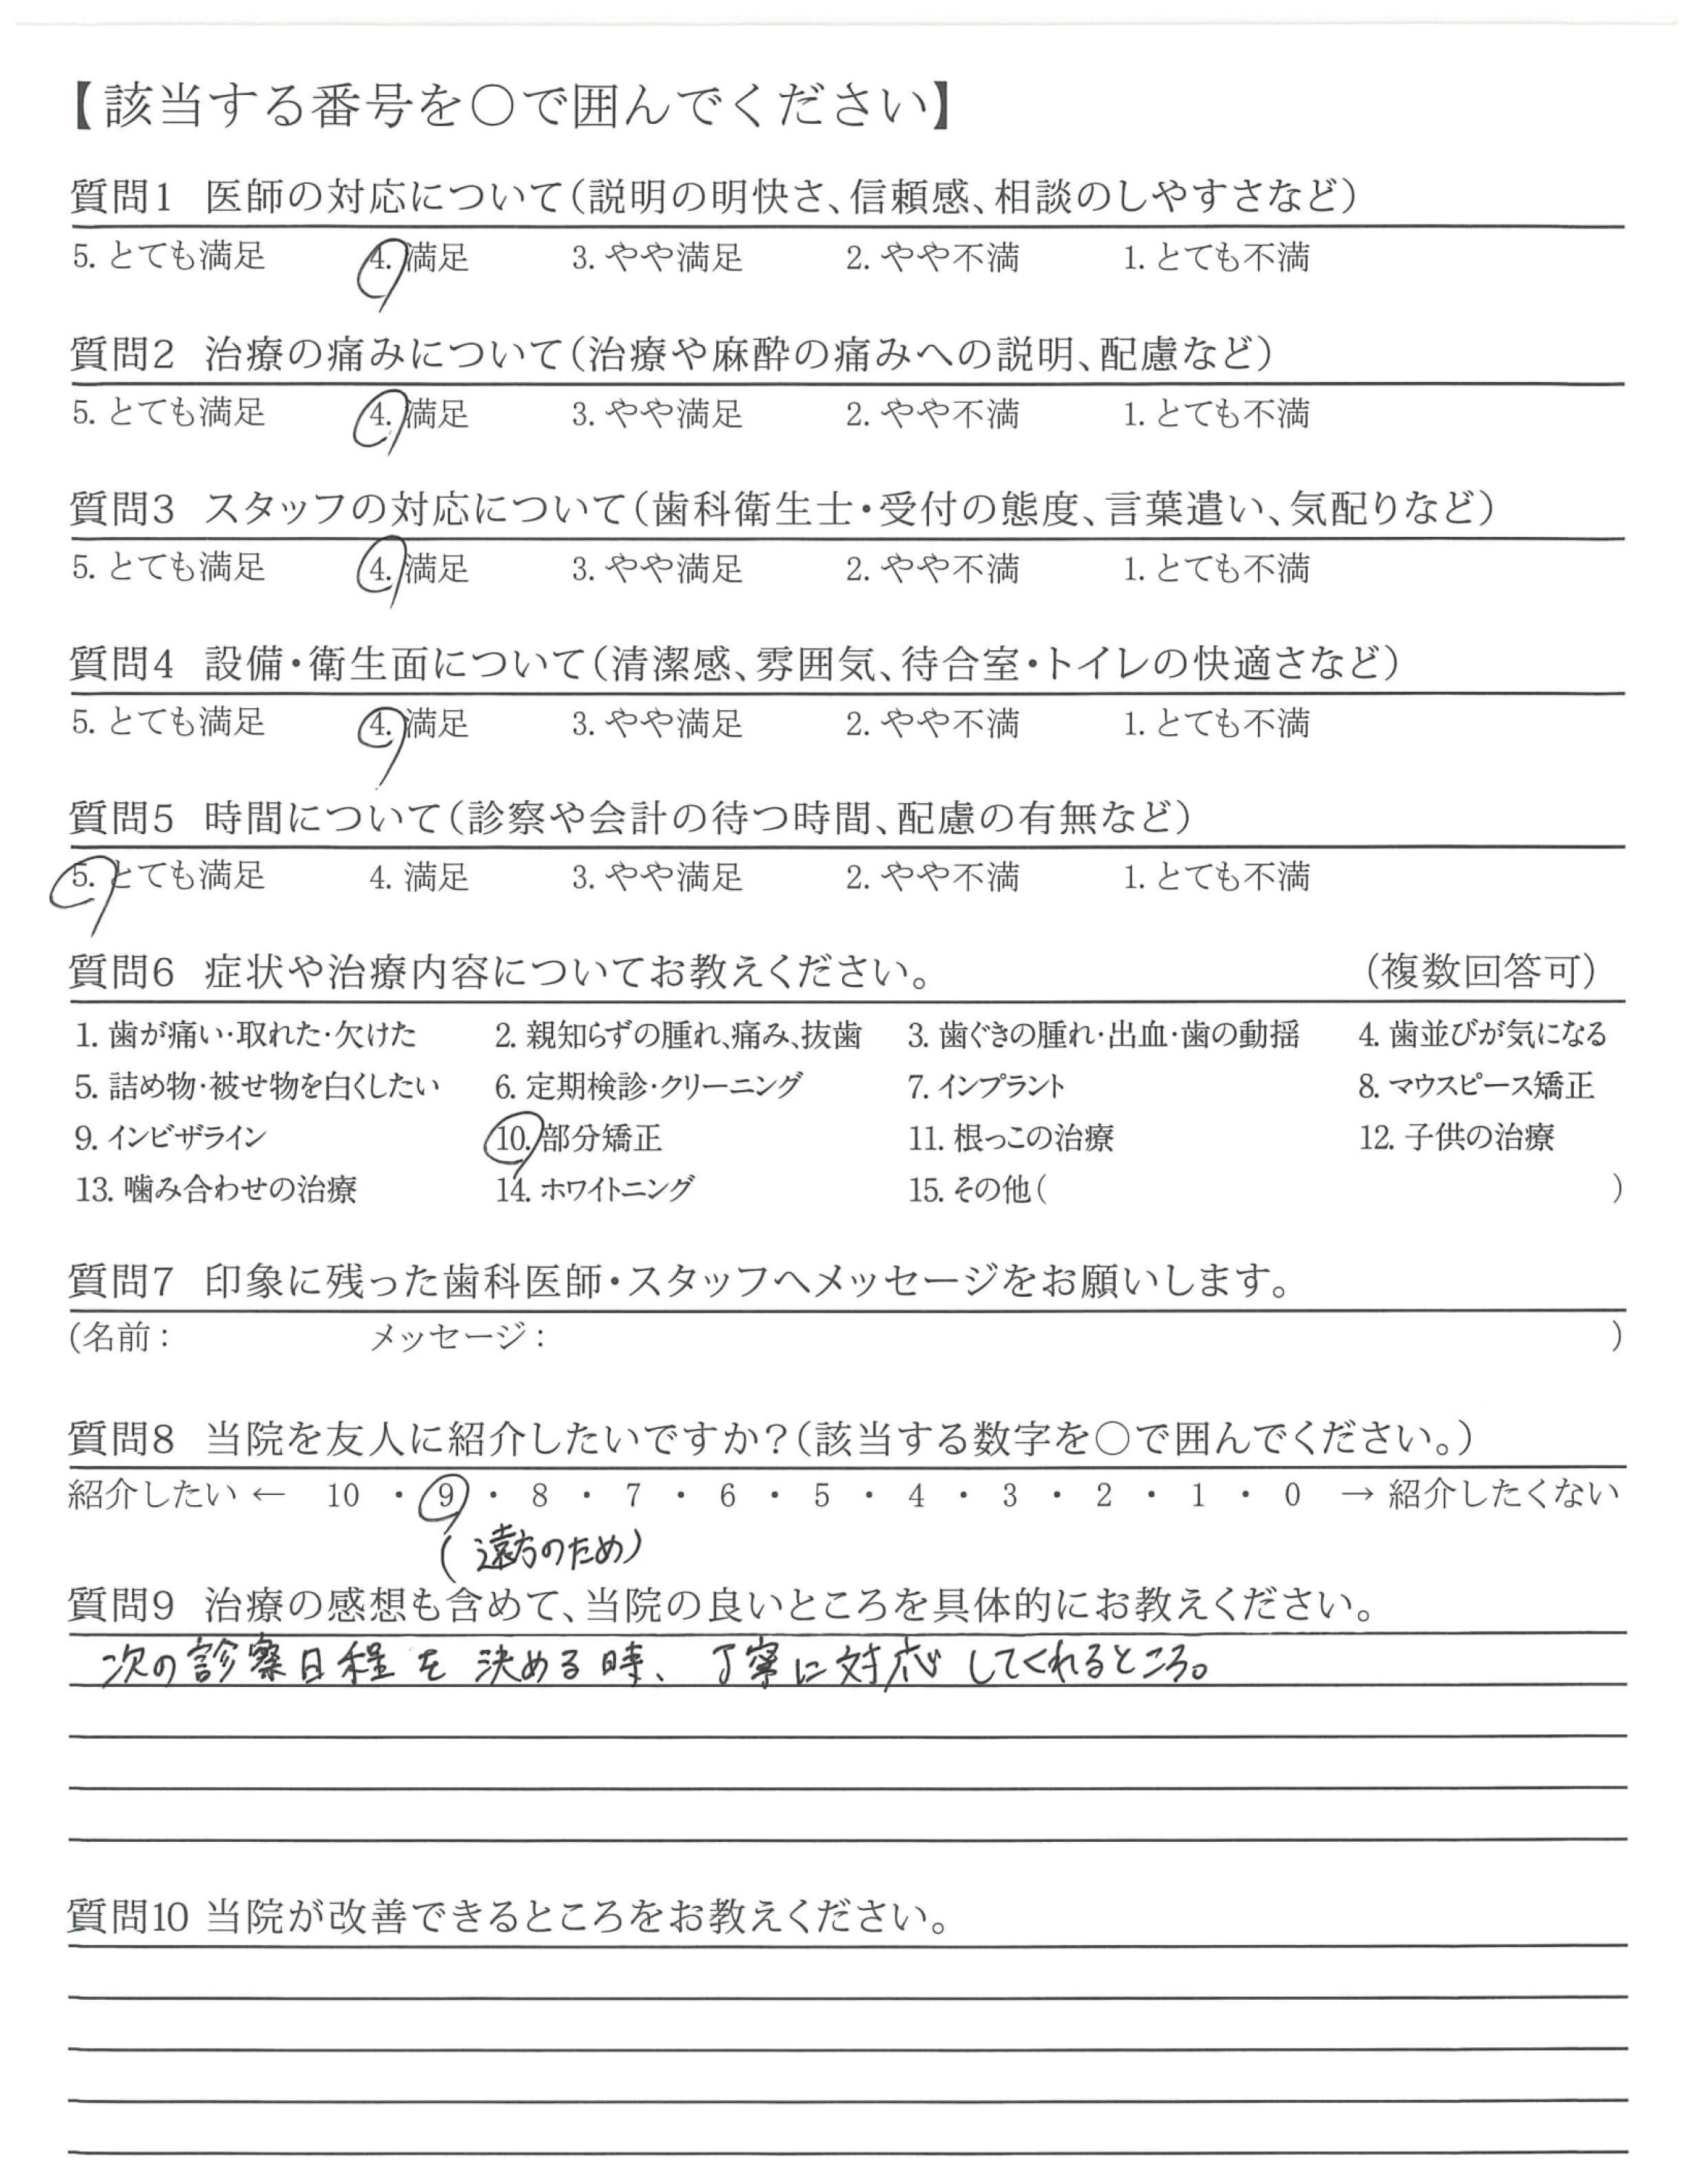 【該当する番号を○で囲んでください】
質問1 医師の対応について(説明の明快さ、信頼感、相談のしやすさなど)
5. とても満足 4. 満足 3. やや満足 2. やや不満 1. とても不満
質問2 治療の痛みについて(治療や麻酔の痛みへの説明、配慮など)
5. とても満足 4. 満足 3. やや満足 2. やや不満 1. とても不満
質問3 スタッフの対応について(歯科衛生士・受付の態度、言葉遣い、気配りなど)
5. とても満足 4. 満足 3. やや満足 2. やや不満 1. とても不満
質問4 設備・衛生面について(清潔感、雰囲気、待合室・トイレの快適さなど)
5. とても満足 4. 満足 3. やや満足 2. やや不満 1. とても不満
質問5 時間について(診察や会計の待つ時間、配慮の有無など)
5. とても満足 4. 満足 3. やや満足 2. やや不満 1. とても不満
質問6 症状や治療内容についてお教えください。 (複数回答可)
1. 歯が痛い・取れた・欠けた 2. 親知らずの腫れ、痛み、抜歯 3. 歯ぐきの腫れ・出血・歯の動揺 4. 歯並びが気になる
5. 詰め物・被せ物を白くしたい 6. 定期検診・クリーニング 7. インプラント 8. マウスピース矯正
9. インビザライン 10. 部分矯正 11. 根っこの治療 12. 子供の治療
13. 噛み合わせの治療 14. ホワイトニング 15. その他( )
質問7 印象に残った歯科医師・スタッフへメッセージをお願いします。
(名前: メッセージ: )
質問8 当院を友人に紹介したいですか?(該当する数字を○で囲んでください。)
紹介したい ← 10 ・ 9 ・ 8 ・ 7 ・ 6 ・ 5 ・ 4 ・ 3 ・ 2 ・ 1 ・ 0 → 紹介したくない
(遠方のため)
質問9 治療の感想も含めて、当院の良いところを具体的にお教えください。
次の診察日程を決める時、丁寧に対応してくれるところ。
質問10 当院が改善できるところをお教えください。